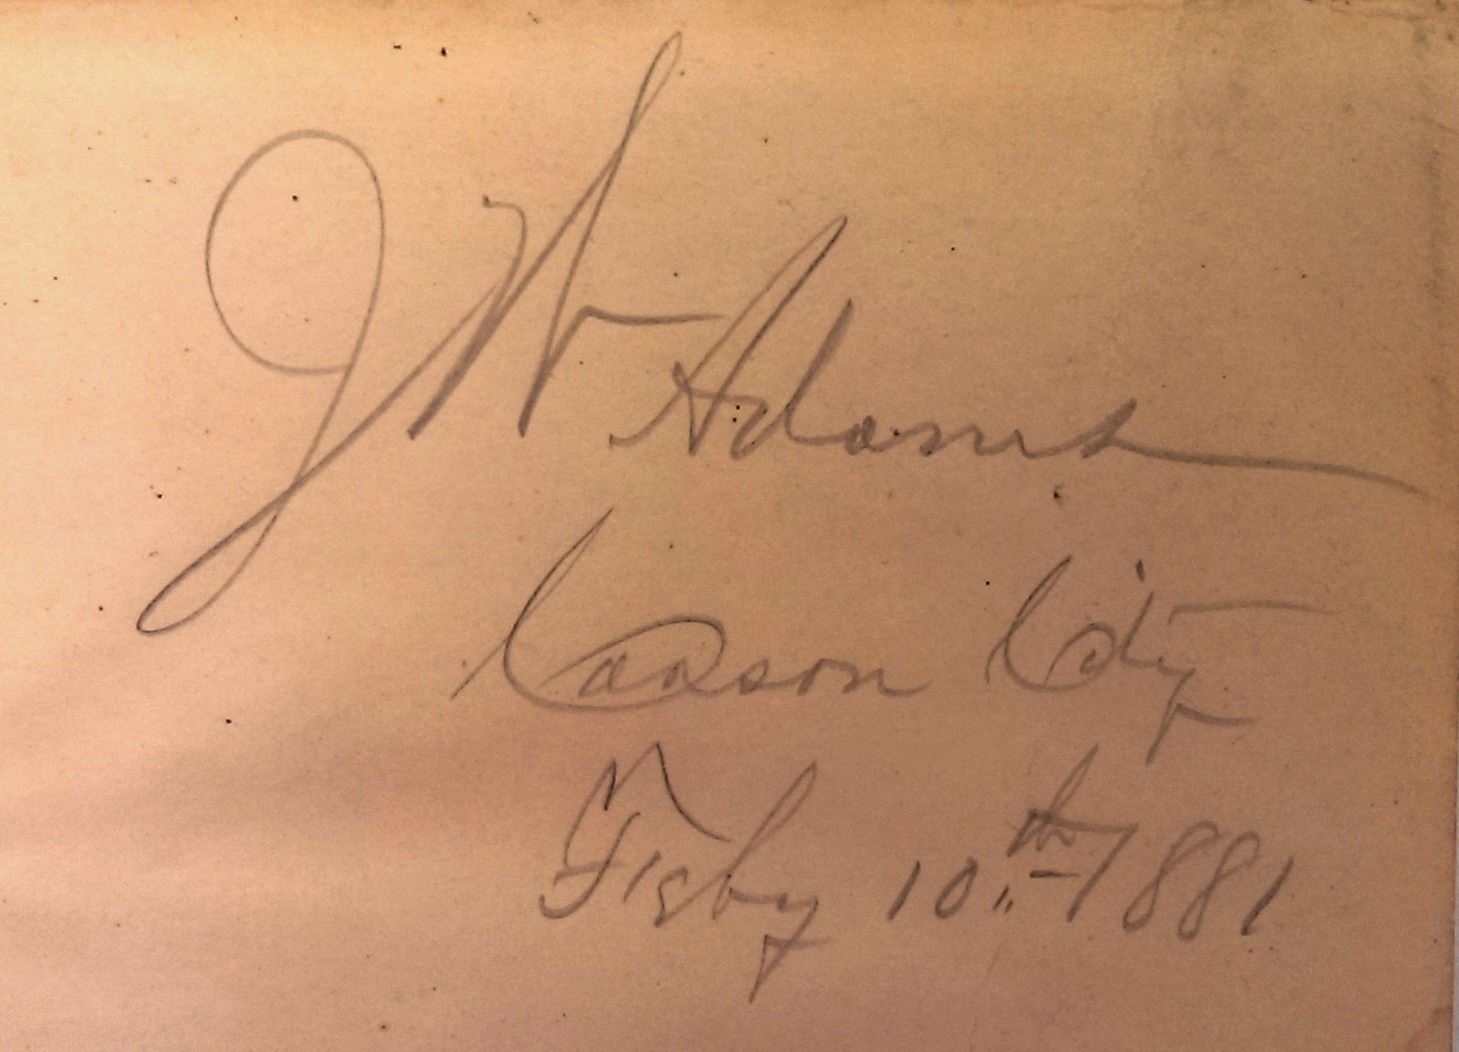 J W Adams
Carson City
Feby 10th 1881